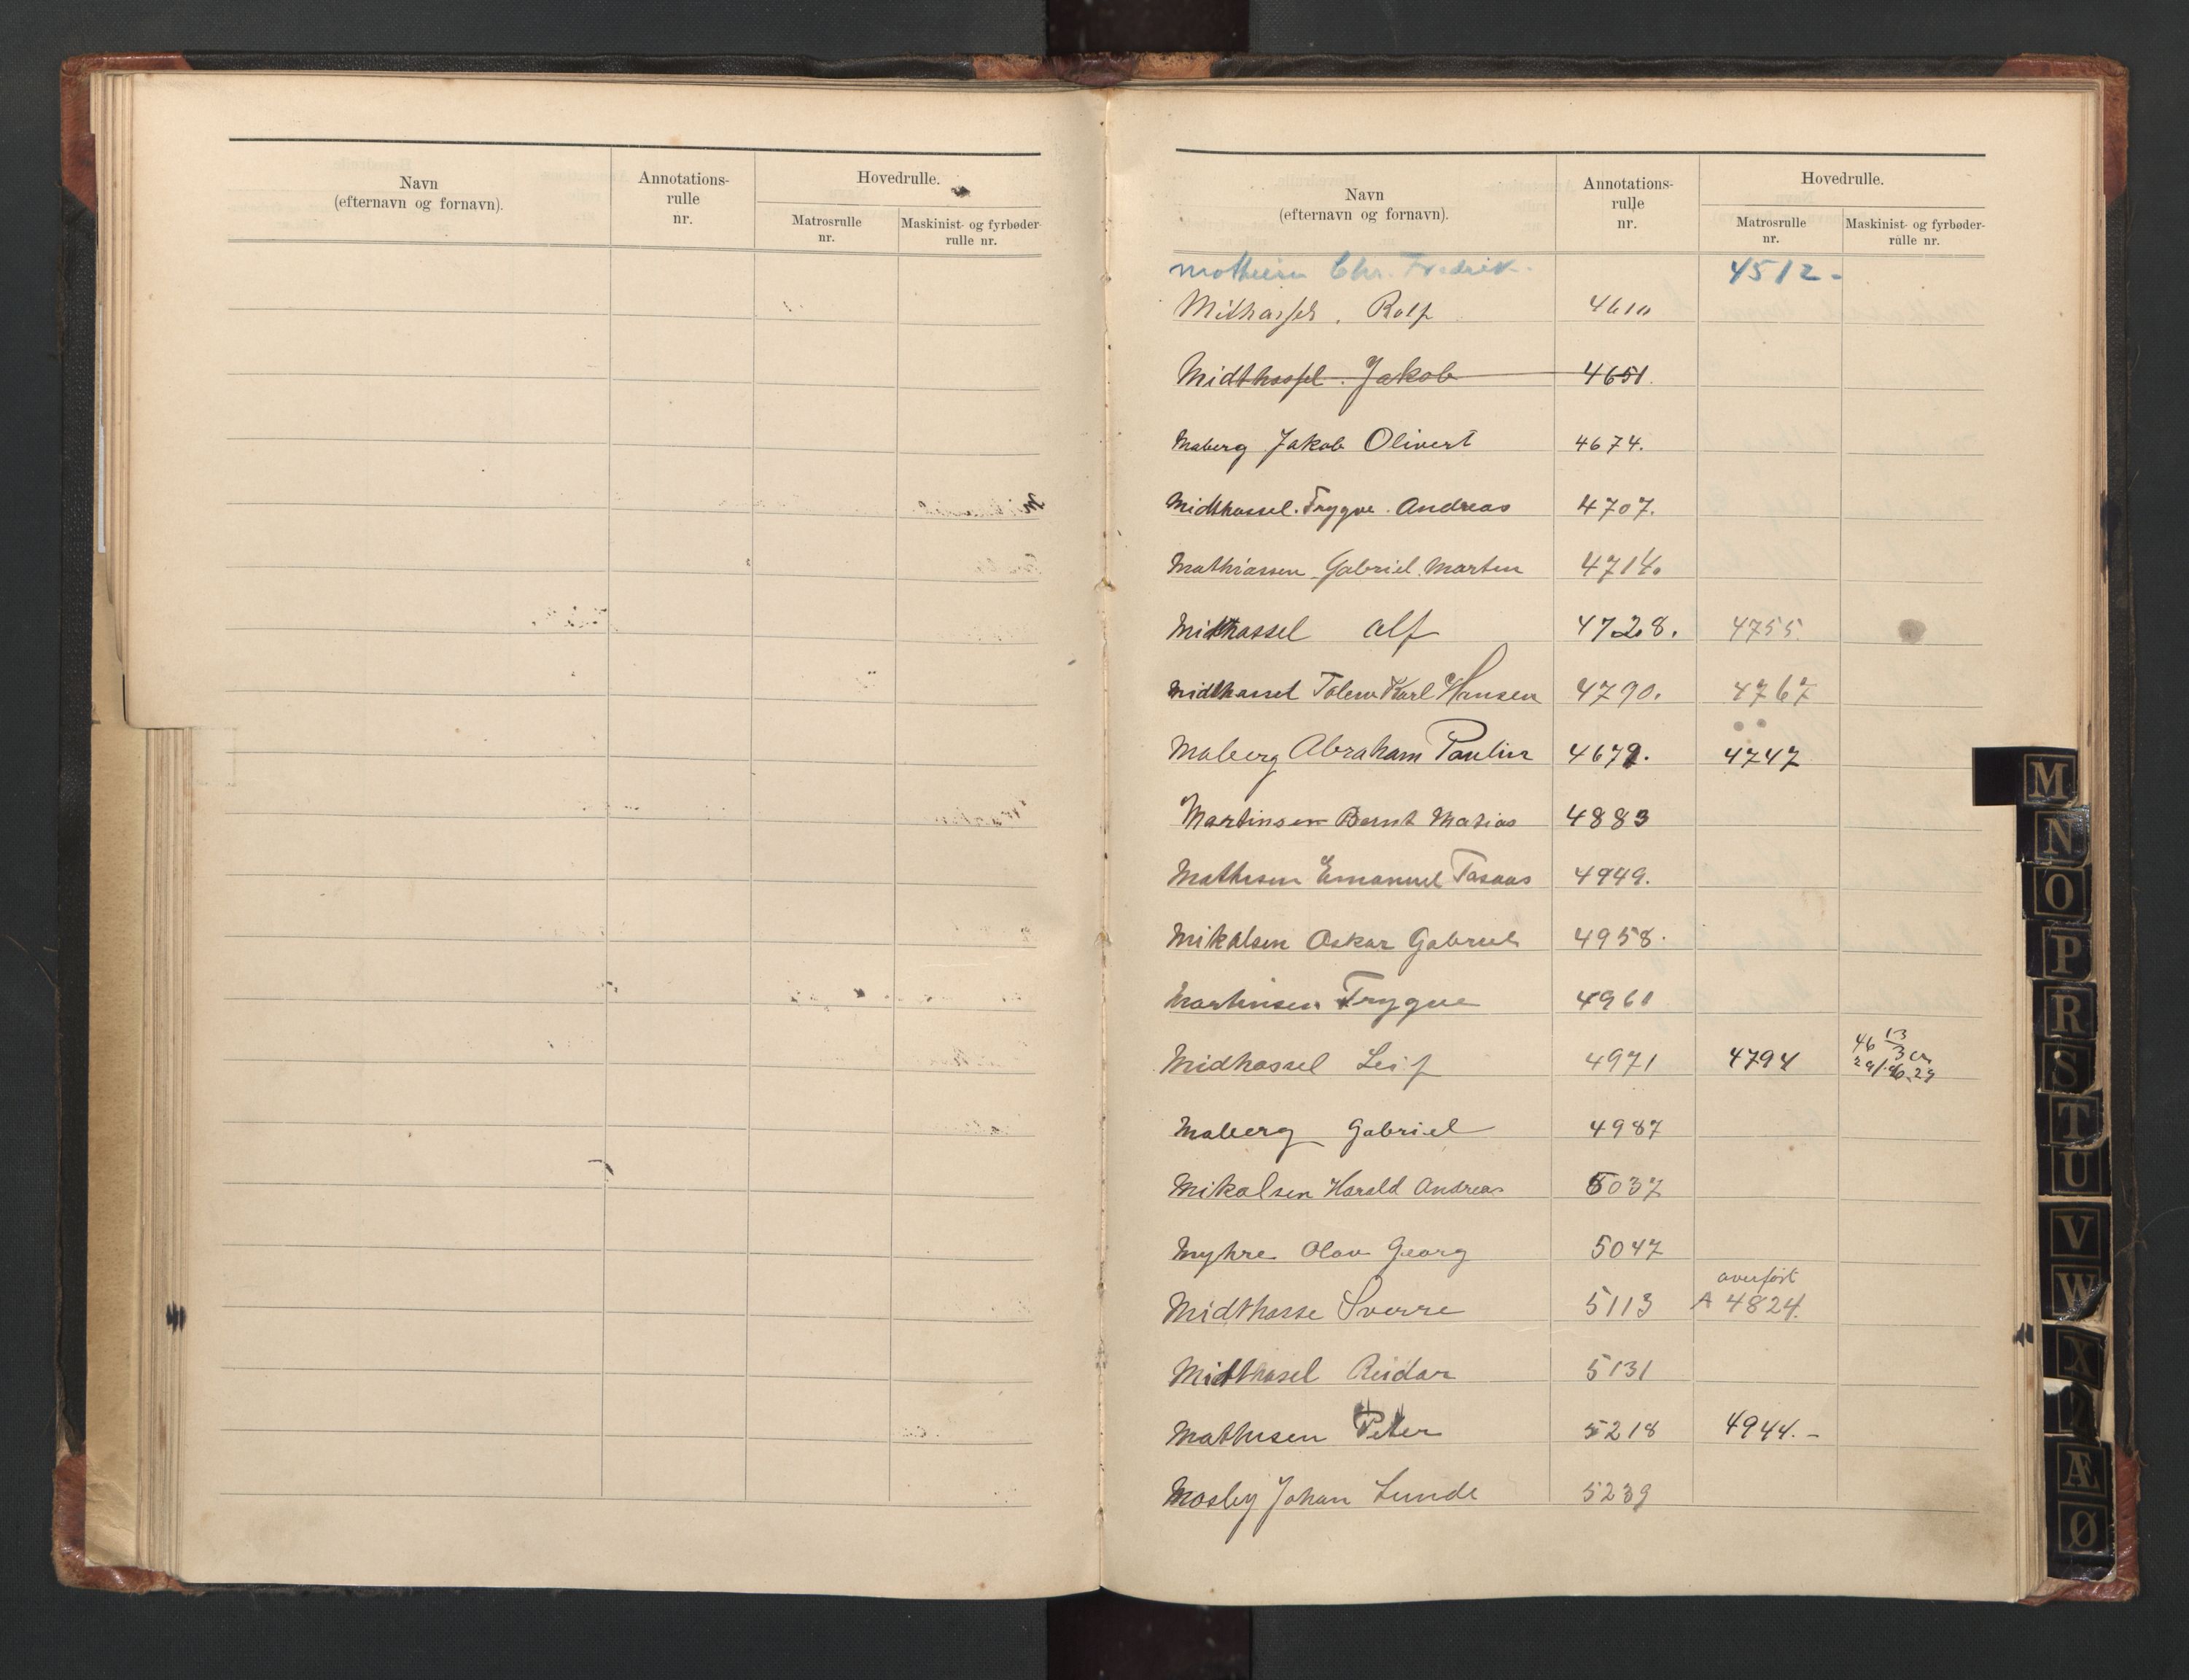 Navn
(efternavn og fornavn).
Annotations-
rulle
nr.
Hovedrulle.
Matrosrulle
nr.
Maskinist- og fyrbøder-
rulle nr.
Navn
(efternavn og fornavn).
Annotations-
rulle
nr.
Hovedrulle.
Matrosrulle
nr.
Maskinist- og fyrbøder-
rulle nr.
Chr. Fredrik. 4512-
Rolf 4610
Midthassel. Jakob 4651.
Maberg Jakob Olivert 4674.
Midthassel. Trygve. Andreas 4707.
Mathiassen Gabriel. Martin 4714.
Midthassel Alf 4728. 4755.
Midthassel Karl Hansen 4790. 4767
Maberg Abraham Paulin 4679. 4747
Martinsen Bernt Matias 4883
Mathesen Emanuel 4949.
Mikalsen Oskar Gabriel 4958.
Martinsen Trygve 4961
Midhassel Leif 4971 4794 46 13/3
Maberg Gabriel 4987
Mikalsen Harald Andreas 5037
Myhre Olav Georg 5047
overført
Midthasse Sverre 5113 A 4824.
Midthasel Reidar 5131
Mathesen Peter 5218 4944.-
Mosby Johan Lunde 5239
M
N
O
P
R
S
T
U
V
W
X
Æ
Ø